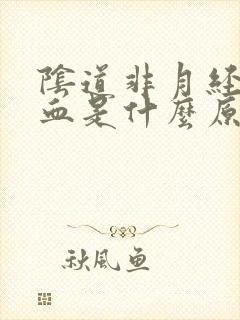 陰道非月经
血是什麼原
秋風魚